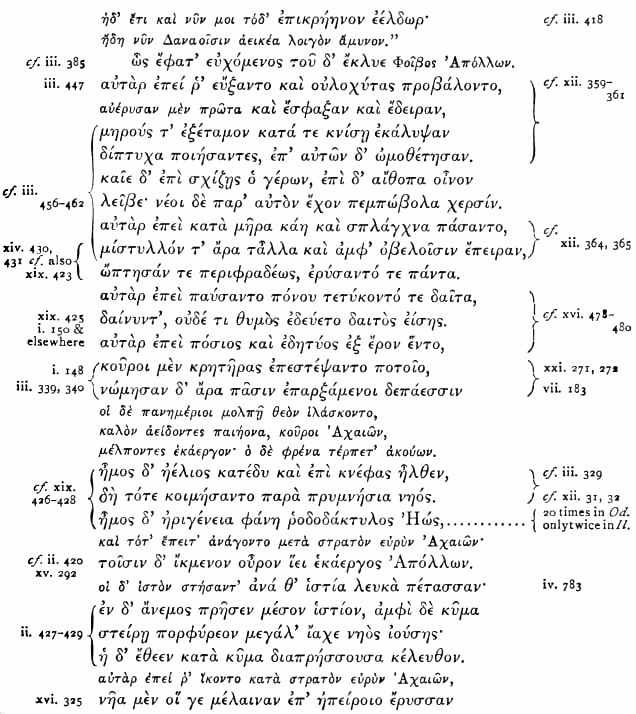 ἠδ' ἔτι καὶ νῦν μοι τόδ' ἐπικρήηνον ἐέλδωρ· cf. iii. 418
ἤδη νῦν Δαναοῖσιν ἀεικέα λοιγὸν ἄμυνον."
cf. iii. 385 ὣς ἔφατ' εὐχόμενος τοῦ δ' ἔκλυε Φοῖβος Ἀπόλλων.
iii. 447 αὐτὰρ ἐπεί ῥ' εὔξαντο καὶ οὐλοχύτας προβάλοντο, cf. xii. 359-
361
αὐέρυσαν μὲν πρῶτα καὶ ἔσφαξαν καὶ ἔδειραν,
μηρούς τ' ἐξέταμον κατά τε κνίσῃ ἐκάλυψαν
δίπτυχα ποιήσαντες, ἐπ' αὐτῶν δ' ὠμοθέτησαν.
καῖε δ' ἐπὶ σχίζῃς ὁ γέρων, ἐπὶ δ' αἴθοπα οἶνον
cf. iii.
456-462 λεῖβε· νέοι δὲ παρ' αὐτὸν ἔχον πεμπώβολα χερσίν.
αὐτὰρ ἐπεὶ κατὰ μῆρα κάη καὶ σπλάγχνα πάσαντο, cf.
xii. 364, 365
xiv. 430, μίστυλλόν τ' ἄρα τἆλλα καὶ ἀμφ' ὀβελοῖσιν ἔπειραν,
431 cf. also
xix. 423 ὤπτησάν τε περιφραδέως, ἐρύσαντό τε πάντα.
αὐτὰρ ἐπεὶ παύσαντο πόνου τετύκοντό τε δαῖτα,
xix. 425 δαίνυντ', οὐδέ τι θυμὸς ἐδεύετο δαιτὸς ἐίσης. cf. xvi. 478-
480
i. 150 &
elsewhere αὐτὰρ ἐπεὶ πόσιος καὶ ἐδητύος ἐξ ἔρον ἕντο,
i. 148 κοῦροι μὲν κρητῆρας ἐπεστέψαντο ποτοῖο, xxi. 271, 272
iii. 339, 340 νώμησαν δ' ἄρα πᾶσιν ἐπαρξάμενοι δεπάεσσιν vii. 183
οἱ δὲ πανημέριοι μολπῇ θεὸν ἱλάσκοντο,
καλὸν ἀείδοντες παιήονα, κοῦροι Ἀχαιῶν,
μέλποντες ἑκάεργον· ὁ δὲ φρένα τέρπετ' ἀκούων.
cf. xix. ἦμος δ' ἠέλιος κατέδυ καὶ ἐπὶ κνέφας ἦλθεν, cf. iii. 329
426-428 δὴ τότε κοιμήσαντο παρὰ πρυμνήσια νηός. cf. xii. 31, 32
ἦμος δ' ἠριγένεια φάνη ῥοδοδάκτυλος Ἠώς,............ 20 times in Od.
only twice in Il.
καὶ τότ' ἔπειτ' ἀνάγοντο μετὰ στρατὸν εὐρὺν Ἀχαιῶν·
cf. ii. 420
xv. 292 τοῖσιν δ' ἴκμενον οὖρον ἵει ἑκάεργος Ἀπόλλων.
οἱ δ' ἱστὸν στήσαντ' ἀνά θ' ἱστία λευκὰ πέτασσαν· iv. 783
ἐν δ' ἄνεμος πρῆσεν μέσον ἱστίον, ἀμφὶ δὲ κῦμα
ii. 427-429 στείρῃ πορφύρεον μεγάλ' ἴαχε νηὸς ἰούσης·
ἡ δ' ἔθεεν κατὰ κῦμα διαπρήσσουσα κέλευθον.
αὐτὰρ ἐπεί ῥ' ἵκοντο κατὰ στρατὸν εὐρὺν Ἀχαιῶν,
xvi. 325 νῆα μὲν οἵ γε μέλαιναν ἐπ' ἠπείροιο ἔρυσσαν